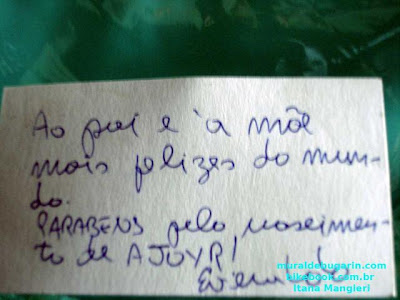 Ao pai e à mãe
mais felizes do mun-
do.
PARABENS pelo nascimen-
to de AJUYR!
muraldebugarin.com
kikebcon.com.br
Itana Mangieri